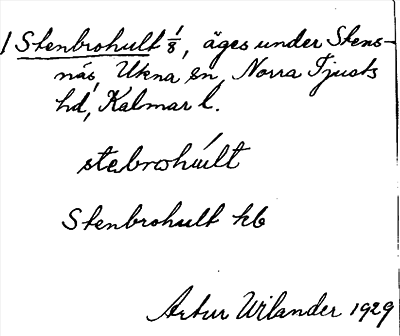 1 Stenbrohult 1/8, äges under Stens-
näs, Ukna sn, Norra Tjusts
hd, Kalmar l.
stebrohúlt
Stenbrohult kb
Artur Wilander 1929